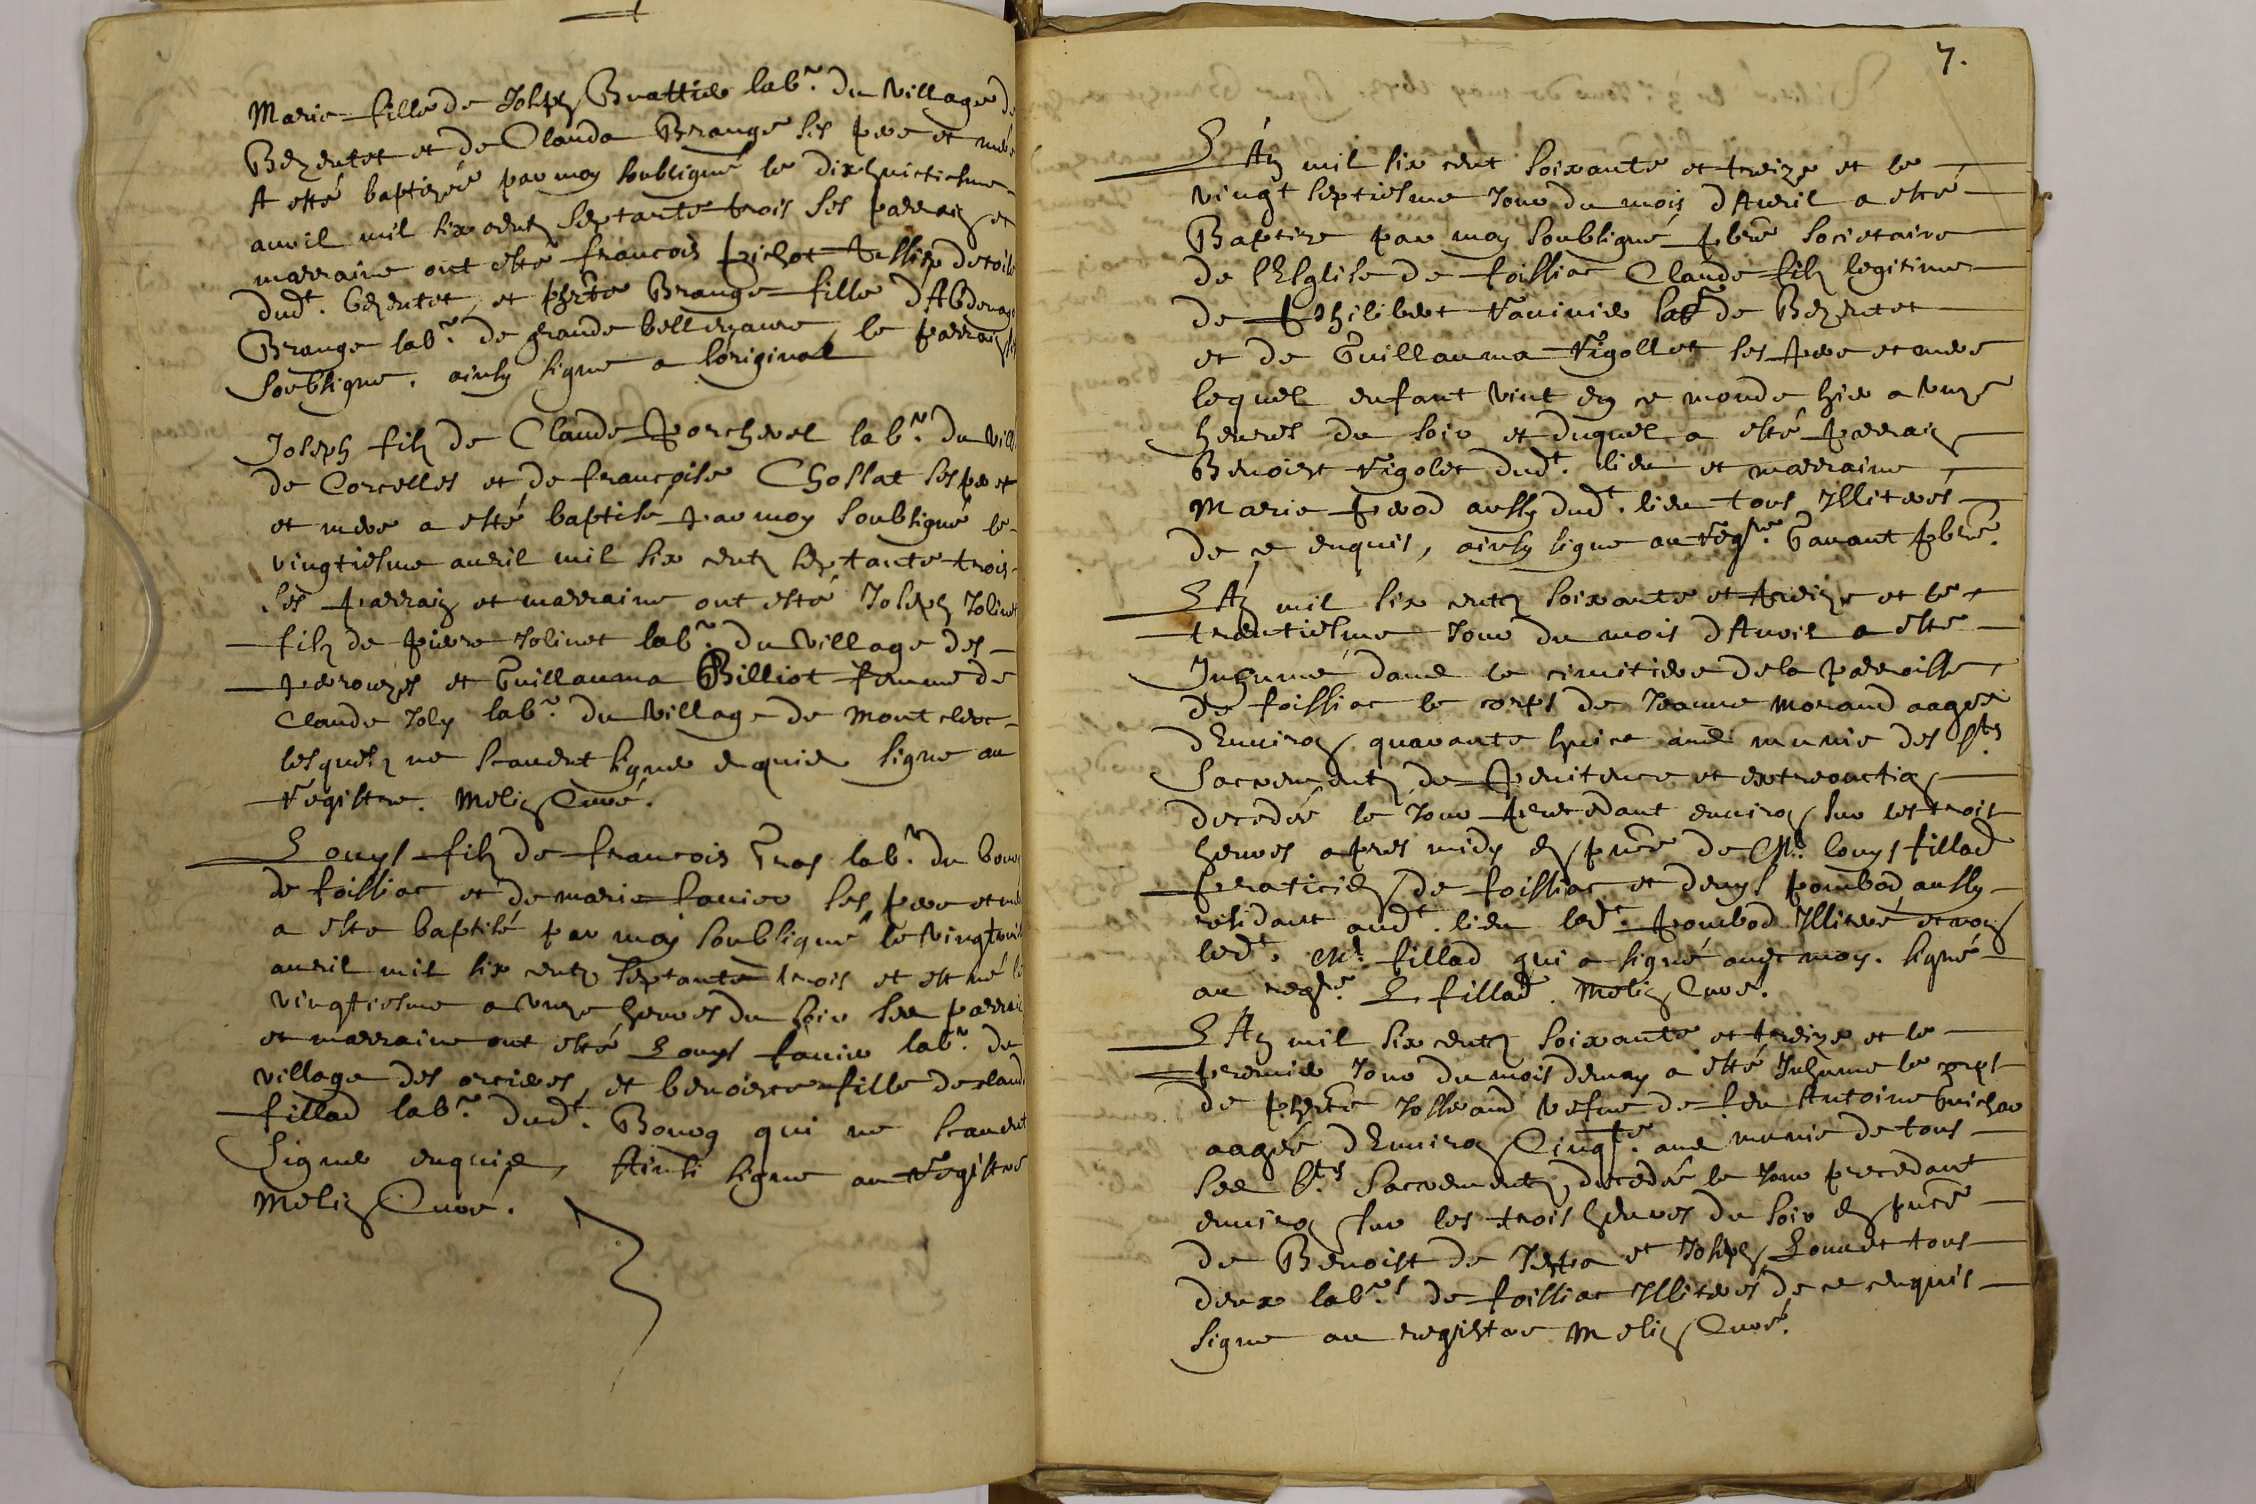 Marie fille de Joseph Buattier labr. du village de
Bezentet et de Clauda Brange ses pere et mere
A esté baptizée par moy soubsigné le dixhuictiesme
auvil mil six centz septante trois ses parrain et
marraine ont esté francois pichot tissier de toile
dudt. Bezentet, et phrte Brange fille d'Abdenago
Brange labr. de grande bellevavre, le parrain
soubsigne. ainsy signe a l'original
Joseph filz de Claude Porcherel labr. du vill
de Corcelles et de françoise Chossat ses pere
et mere a esté baptisé par moy soubsigné le
vingtiesme auril mil six centz septante trois
Ses parrain et marraine ont esté Joseph Jolinet
filz de pierre Jolinet labr. du village des
perouzes et Guillauma Billiot femme de
Claude Joly labr. du village de montclerc
lesquelz ne scauent signer enquis signe au
Registre. Melin Curé.
Louys filz de francois Gras labr. du bourg
de foissiac et de marie fauier ses pere et mere
a esté baptisé par moy soubsigné le vingt
auril mil six centz septante trois et est né le
vingtiesme a unze heures du soir ses parrain
et marraine ont esté Louys fauier labr. du
village des orcieres, et benoiste fille de claude
fillad labr. dudt. Bourg qui ne scauent
Signer enquis, Ainsi signe au Registre
Melin Curé.
7.
L'An mil six cent soixante et treize et le
vingt septiesme Jour du mois d'Auril a esté
Baptize par moy soubsigné pbre societaire
de l'Esglise de foissiac Claude filz legitime
de philibert Vauinier labr de Bezentet
et de Guillauma Rigollet ses pere et mere
lequel enfant vint en ce monde hier a unze
heures du soir et duquel a esté parrain
Benoist Rigolet dudt. lieu et marraine
Marie perod aussy dudt. lieu tous Illiterés
de ce enquis, ainsy signe au Regre. Gauant pbre.
L'An mil six centz soixante et treize et le
trentiesme Jour du mois d'Auril a esté
Inhumé dans le cimitiere de la parroisse
de foissiac le corps de Jeanne morand aagée
d'Enuiron quarante huict ans munie des Sts
Sacrementz de Penitence et extreonction
decedée le Jour precedant enuiron sur les trois
heures apres midy en pnce de Mr. Louys fillad
praticien de foissiac et denys pombod aussy
residant audt. lieu ledt. pombod Illiteré et non
ledt. Mr. fillad qui a signé auec moy. signé
au regre. L fillad. Melin Curé.
L'An mil six centz soixante et treize et le
premier Jour du mois de may a esté Inhume le corps
de phrte Josserand vefue de feu Antoine Guichar
aagée d'Enuiron Cinqte. ans munie de tous
les Sts Sacrementz, decedée le Jour precedant
enuiron sur les trois heures du soir en pnce
de Benoist de et Joseph Louuet tous
deux labrs. de foissiac Illiterés de ce enquis
signe au registre Melin Curé.